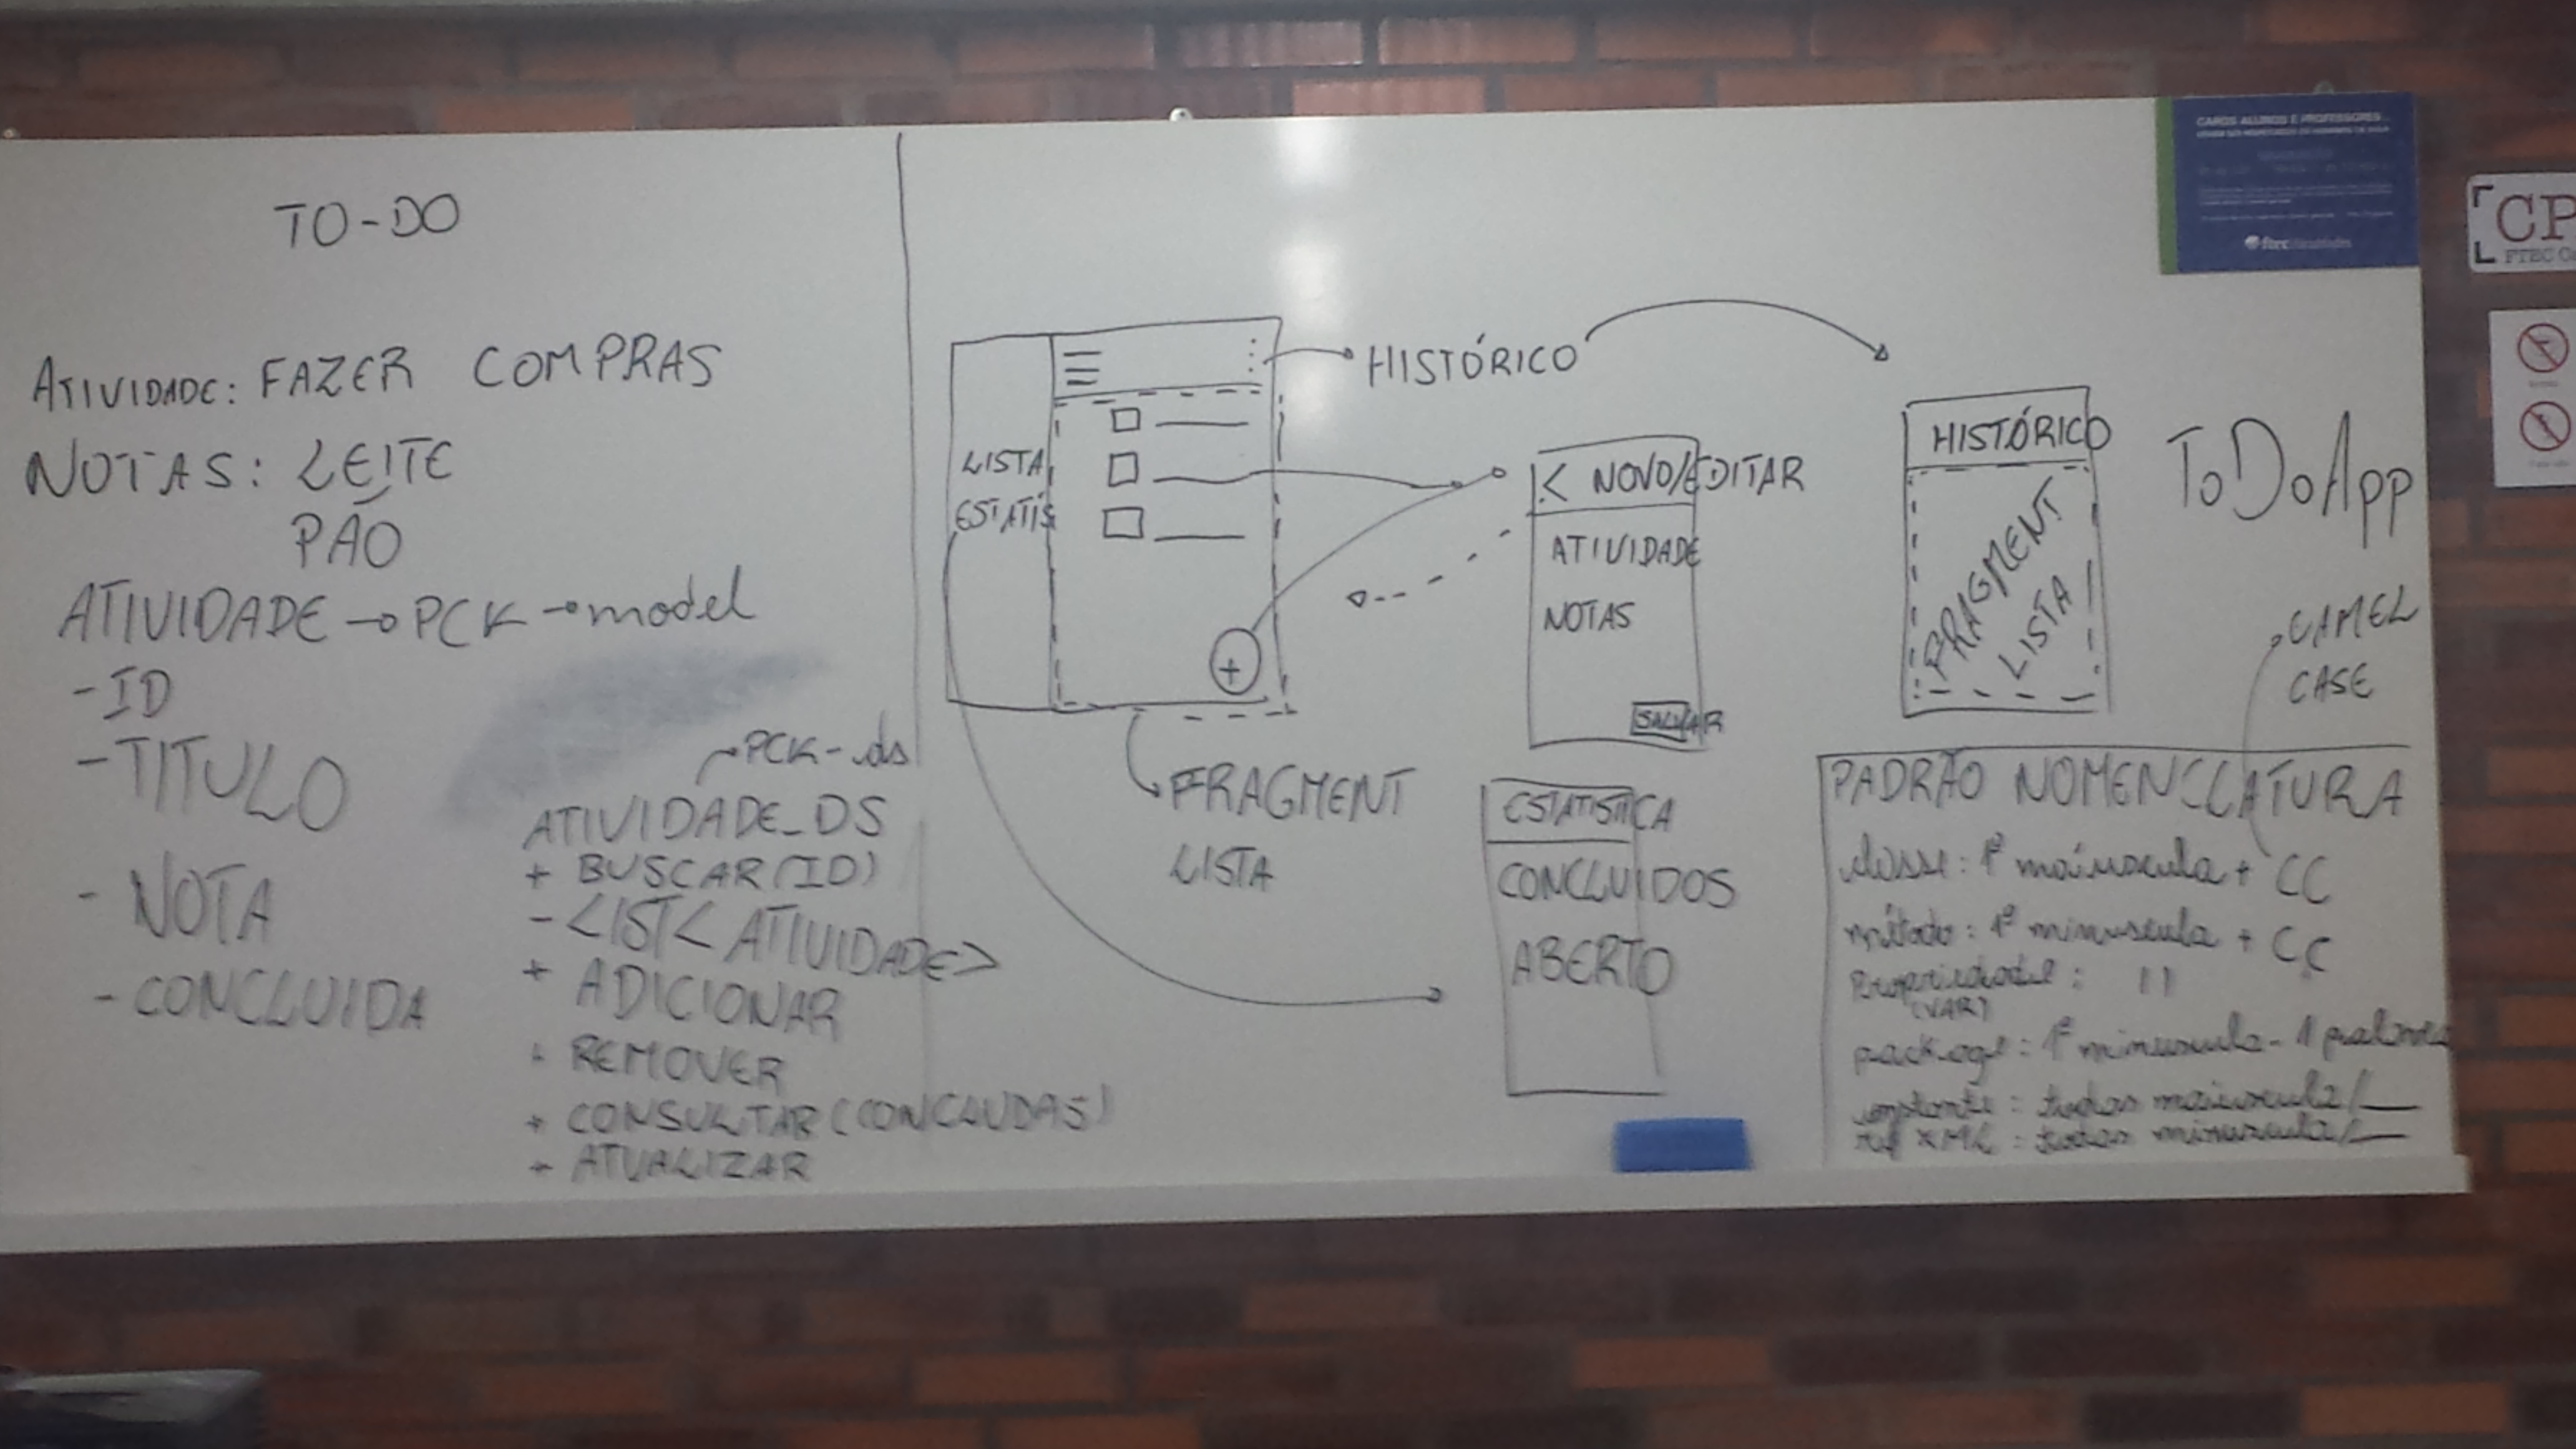 TO-DO
ATIVIDADE: FAZER COMPRAS
NOTAS: LEITE
PÃO
ATIVIDADE → PCK → model
- ID
- TITULO
- NOTA
- CONCLUIDA
PCK - ds
ATIVIDADE_DS
+ BUSCAR (ID)
- LIST< ATIVIDADE>
+ ADICIONAR
+ REMOVER
+ CONSULTAR (CONCLUDAS)
+ ATUALIZAR
LISTA
ESTATÍS
+
HISTÓRICO
FRAGMENT
LISTA
< NOVO/EDITAR
ATIVIDADE
NOTAS
SALVAR
ESTATISTICA
CONCLUIDOS
ABERTO
HISTÓRICO
FRAGMENT
LISTA
ToDoApp
CAMEL
CASE
PADRÃO NOMENCLATURA
classe: 1ª maiuscula + CC
método: 1ª minuscula + CC
Propriedade: "
(VAR)
package: 1ª minuscula - 1 palavra
constante: todas maiuscula/_
ref XML: todas minuscula/_
CAROS ALUNOS E PROFESSORES
ftec faculdades
CP
FTEC